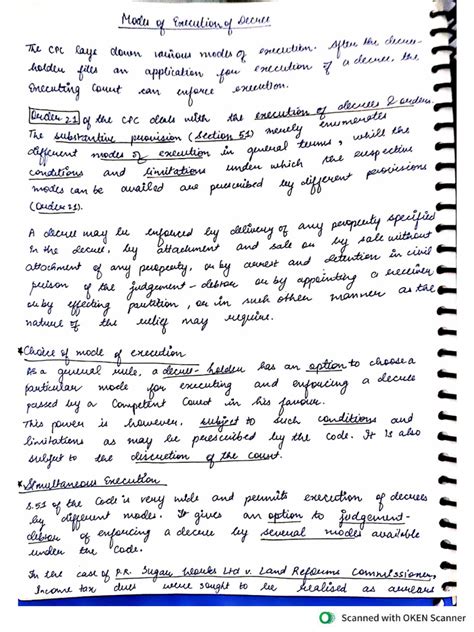 Modes of Execution of Decree
The CPC lays down various modes of execution. After the decree-
holder files an application for execution of a decree, the
executing Court can enforce execution.
Order 21 of the CPC deals with the execution of decrees & orders.
The substantive provision (Section 51) merely enumerates
different modes of execution in general terms, while the
conditions and limitations under which the respective
modes can be availed are prescribed by different provisions
(Order 21).
A decree may be enforced by delivery of any property specified
in the decree, by attachment and sale or by sale without
attachment of any property, or by arrest and detention in civil
prison of the judgement-debtor or by appointing a receiver
or by effecting partition, or in such other manner as the
nature of the relief may require.
*Choice of mode of execution
As a general rule, a decree-holder has an option to choose a
particular mode for executing and enforcing a decree
passed by a Competent Court in his favour.
This power is however, subject to such conditions and
limitations as may be prescribed by the Code. It is also
subject to the discretion of the court.
*Simultaneous Execution
S.51 of the Code is very wide and permits execution of decrees
by different modes. It gives an option to judgement-
debtor of enforcing a decree by several modes available
under the Code.
In the case of P.R. Sugar Works Ltd v. Land Reforms Commissioner,
Income tax dues were sought to be realised as arrears
Scanned with OKEN Scanner